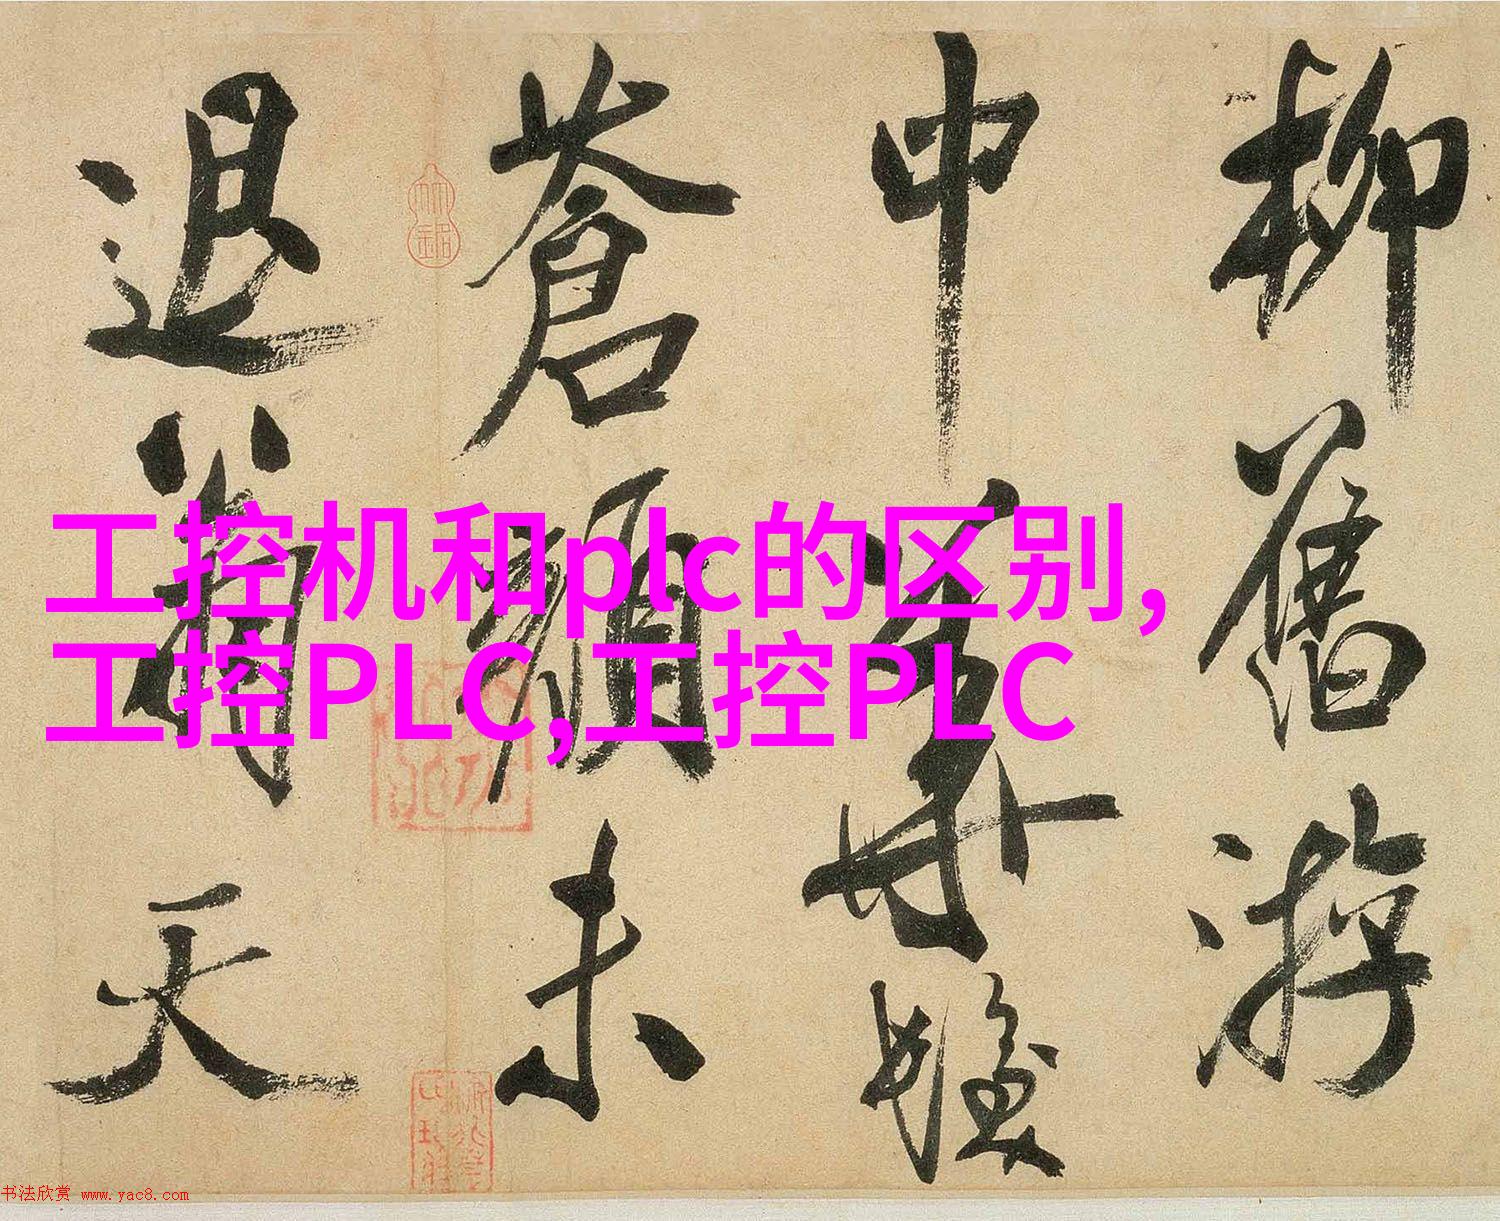 柳舊游
中華
蒼顏未
退翁天
工控机和plc的区别,
工控PLC,工控PLC
书法欣赏 www.yac8.com